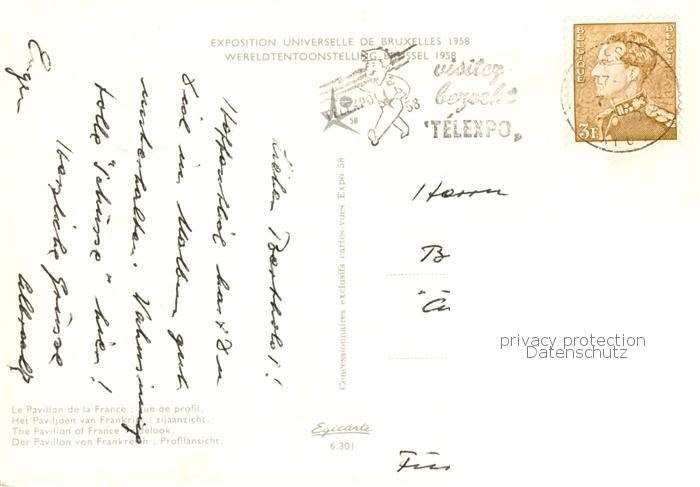 EXPOSITION UNIVERSELLE DE BRUXELLES 1958
WERELDTENTOONSTELLING BRUSSEL 1958
visitez
bezoekt
"TÉLEXPO„
TÉLEXPO 58
58
BELGIQUE
BELGIË
3F
Lieber Berthold!
Hoffentlich hast Du
Dich in
gut
unterhalten. Wahnsinnig
tolle "
" hier!
Herzliche Grüsse
Herrn
B
Für
privacy protection
Datenschutz
Concessionnaires exclusifs cartes-vues Expo 58
Le Pavillon de la France : vue de profil.
Het Paviljoen van Frankrijk : zijaanzicht.
The Pavilion of France : sidelook.
Der Pavillon von Frankreich : Profilansicht.
Egicarte
6.301